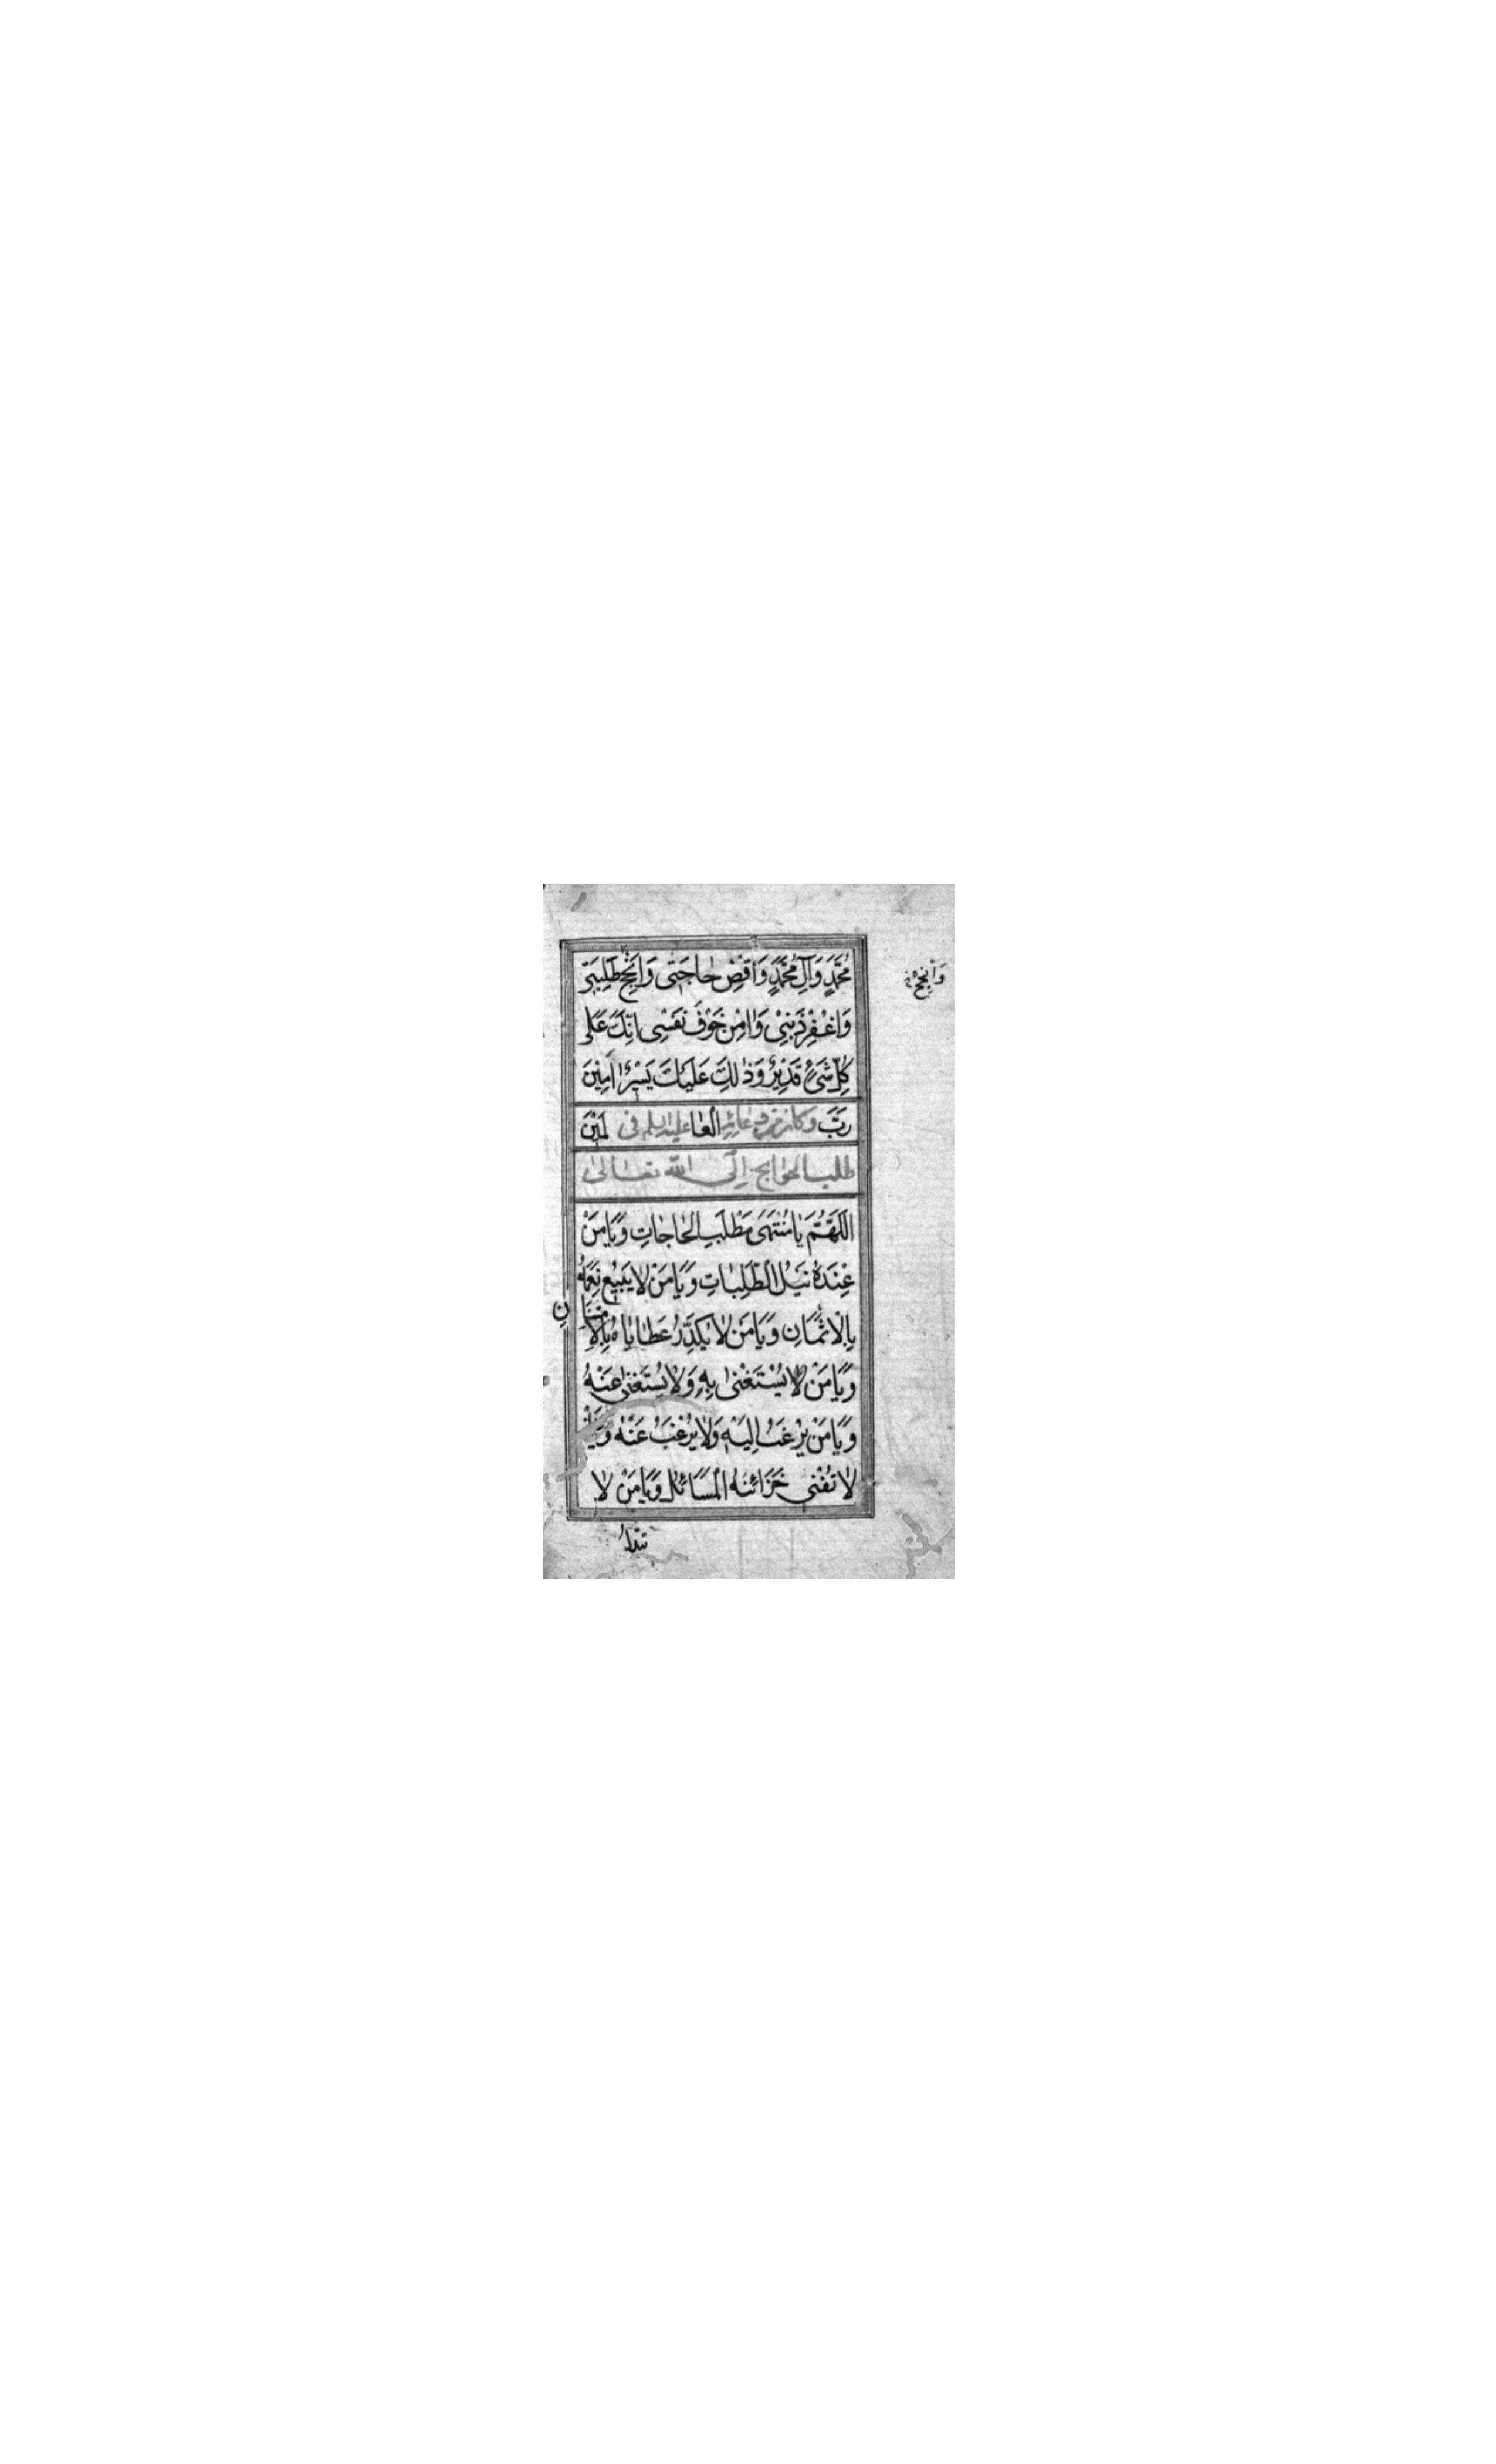 مُحَمَّدٍ وَآلِ مُحَمَّدٍ وَاقْضِ حَاجَتِى وَاَنْجِحْ طَلِبَتِى
وَأَنْجِحْ
وَاغْفِرْ ذَنْبِىْ وَامِنْ خَوْفَ نَفْسِى اِنَّكَ عَلٰى
كُلِّ شَىْءٍ قَدِيْرٌ وَذٰلِكَ عَلَيْكَ يَسِيْرٌ اٰمِيْنَ
رَبَّ وكان من دعائه العا عليه السلم فى لَمِيْنَ
طلب الحوايج اِلَى الله تعالىٰ
اَللّٰهُمَّ يَا مُنْتَهىٰ مَطْلَبِ الْحَاجَاتِ وَيَا مَنْ
عِنْدَهُ نَيْلُ الطَّلِبَاتِ وَيَا مَنْ لَا يَبِيْعُ نِعَمَهُ
بِالْاَثْمَانِ وَيَا مَنْ لَا يُكَدِّرُ عَطَايَاهُ بِالْاِمْتِنَانِ
وَيَا مَنْ لَا يُسْتَغْنىٰ بِهِ وَلَا يُسْتَغْنىٰ عَنْهُ
وَيَا مَنْ يُرْغَبُ اِلَيْهِ وَلَا يُرْغَبُ عَنْهُ وَيَا
لَا تُفْنِى خَزَائِنَهُ الْمَسَائِلُ وَيَا مَنْ لَا
تبدل